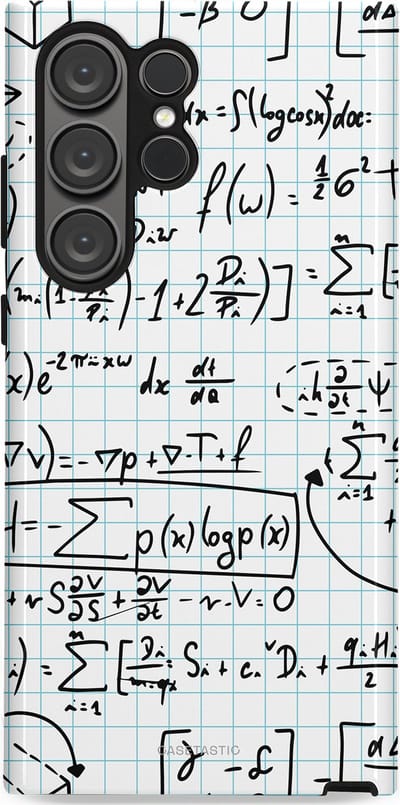 -β 0] [dΔ
dx = ∫(logcosx)²dx:
f(w) = ½6² +
Dᵢw
(mᵢ(1- /Pᵢ)-1+2 Dᵢ/Pᵢ)] = Σⁿᵢ₌₁[
x)e^(-2πixw) dx dt/dQ iħ ∂/∂t Ψ
∇v) = -∇p + ∇·T + f Σⁿᵢ₌₁
H = -Σ p(x) log p(x)
+ rS ∂V/∂S + ∂V/∂t - r·V = 0
i) = Σⁿᵢ₌₁ [Dᵢ/m·qᵢ Sᵢ + cᵢᵛDᵢ + qᵢHᵢ/2
CASETASTIC
[γ -δ] [dΔ